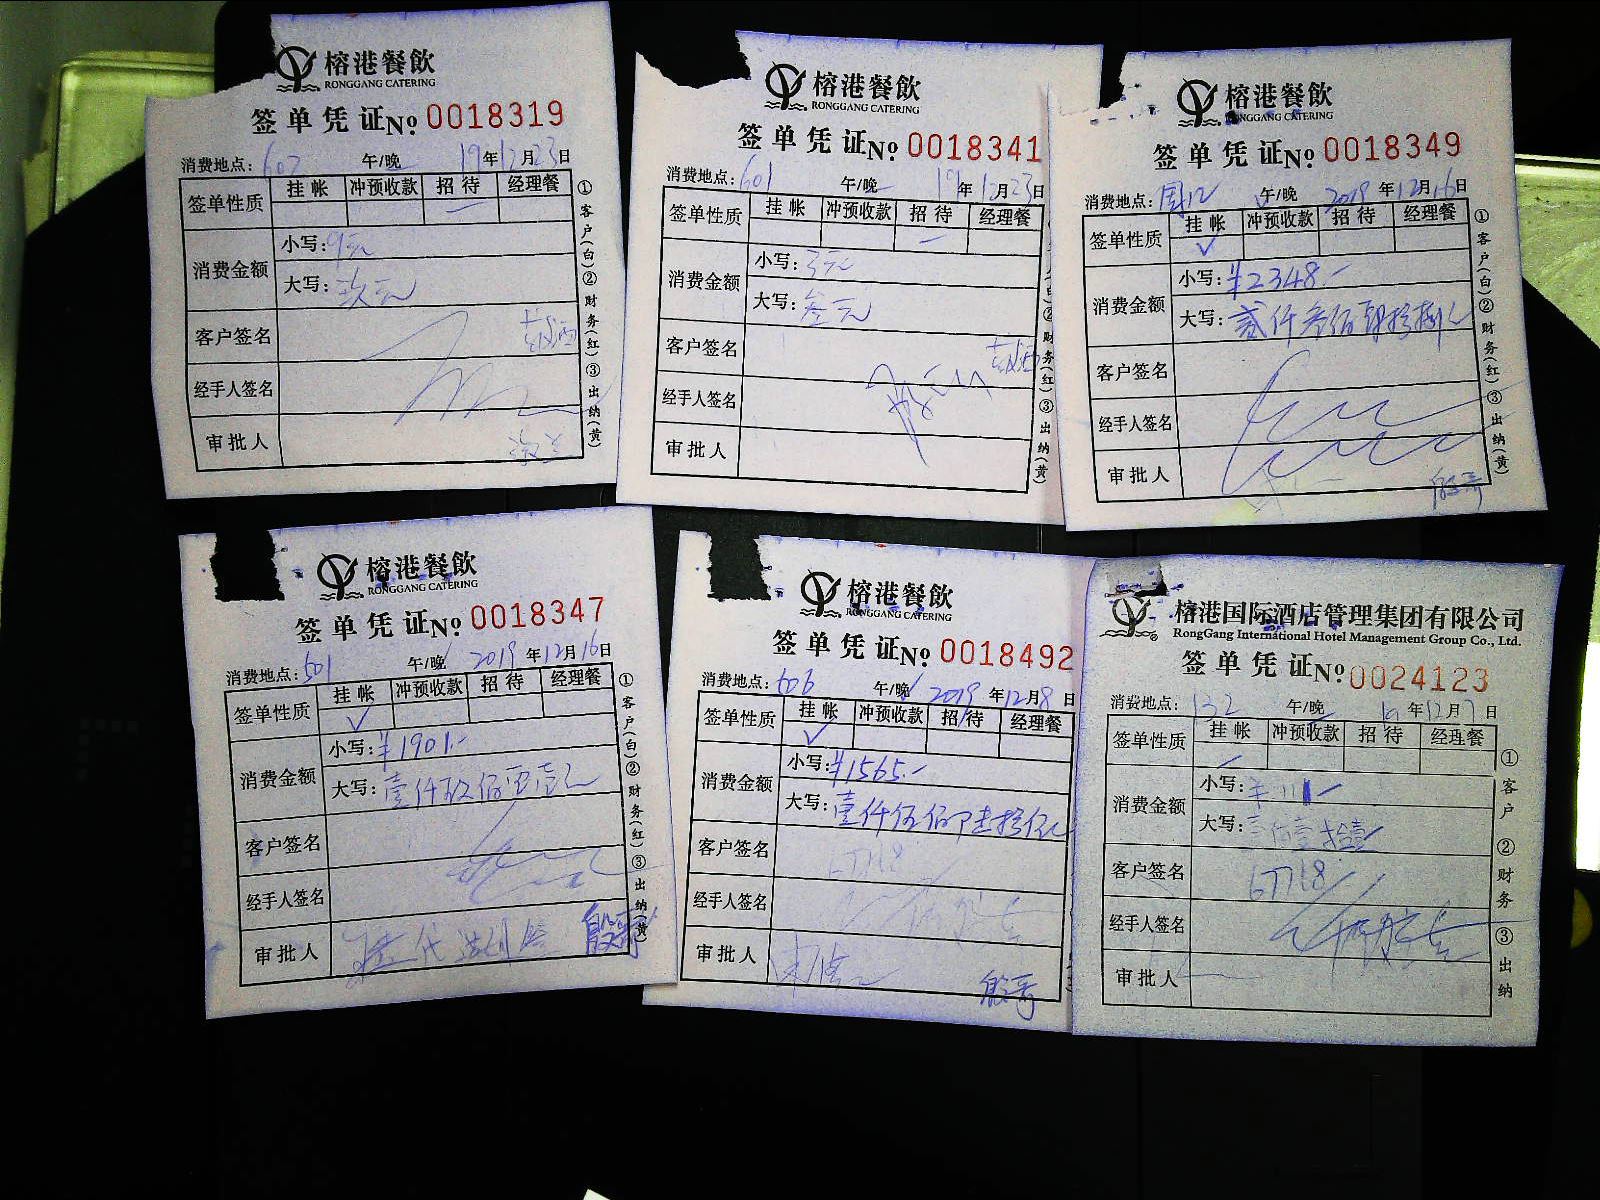 榕港餐飲
RONGGANG CATERING
签单凭证№ 0018319
消费地点: 602 午/晚 19年12月23日
签单性质 挂帐 冲预收款 招待 经理餐
消费金额
小写: 9元
大写: 玖元
客户签名
经手人签名
审批人
①客户(白)②财务(红)③出纳(黄)
榕港餐飲
RONGGANG CATERING
签单凭证№ 0018341
消费地点: 601 午/晚 19年12月23日
签单性质 挂帐 冲预收款 招待 经理餐
消费金额
小写: 3元
大写: 叁元
客户签名
经手人签名
审批人
③出纳(黄)
榕港餐飲
RONGGANG CATERING
签单凭证№ 0018349
消费地点: 午/晚 2019年12月16日
签单性质 挂帐 冲预收款 招待 经理餐
消费金额
小写: ¥2348.-
大写: 贰仟叁佰肆拾捌元
客户签名
经手人签名
审批人
①客户(白)②财务(红)③出纳(黄)
榕港餐飲
RONGGANG CATERING
签单凭证№ 0018347
消费地点: 501 午/晚 2019年12月16日
签单性质 挂帐 冲预收款 招待 经理餐
消费金额
小写: ¥1901.-
大写: 壹仟玖佰零壹元
客户签名
经手人签名
审批人
①客户(白)②财务(红)③出纳(黄)
榕港餐飲
RONGGANG CATERING
签单凭证№ 0018492
消费地点: 606 午/晚 2019年12月8日
签单性质 挂帐 冲预收款 招待 经理餐
消费金额
小写: ¥1565.-
大写: 壹仟伍佰陆拾伍元
客户签名 67718
经手人签名
审批人
榕港国际酒店管理集团有限公司
RongGang International Hotel Management Group Co., Ltd.
签单凭证№ 0024123
消费地点: 132 午/晚 19年12月7日
签单性质 挂帐 冲预收款 招待 经理餐
消费金额
小写: ¥111-
大写: 壹佰壹拾壹
客户签名 67718
经手人签名
审批人
①客户②财务③出纳